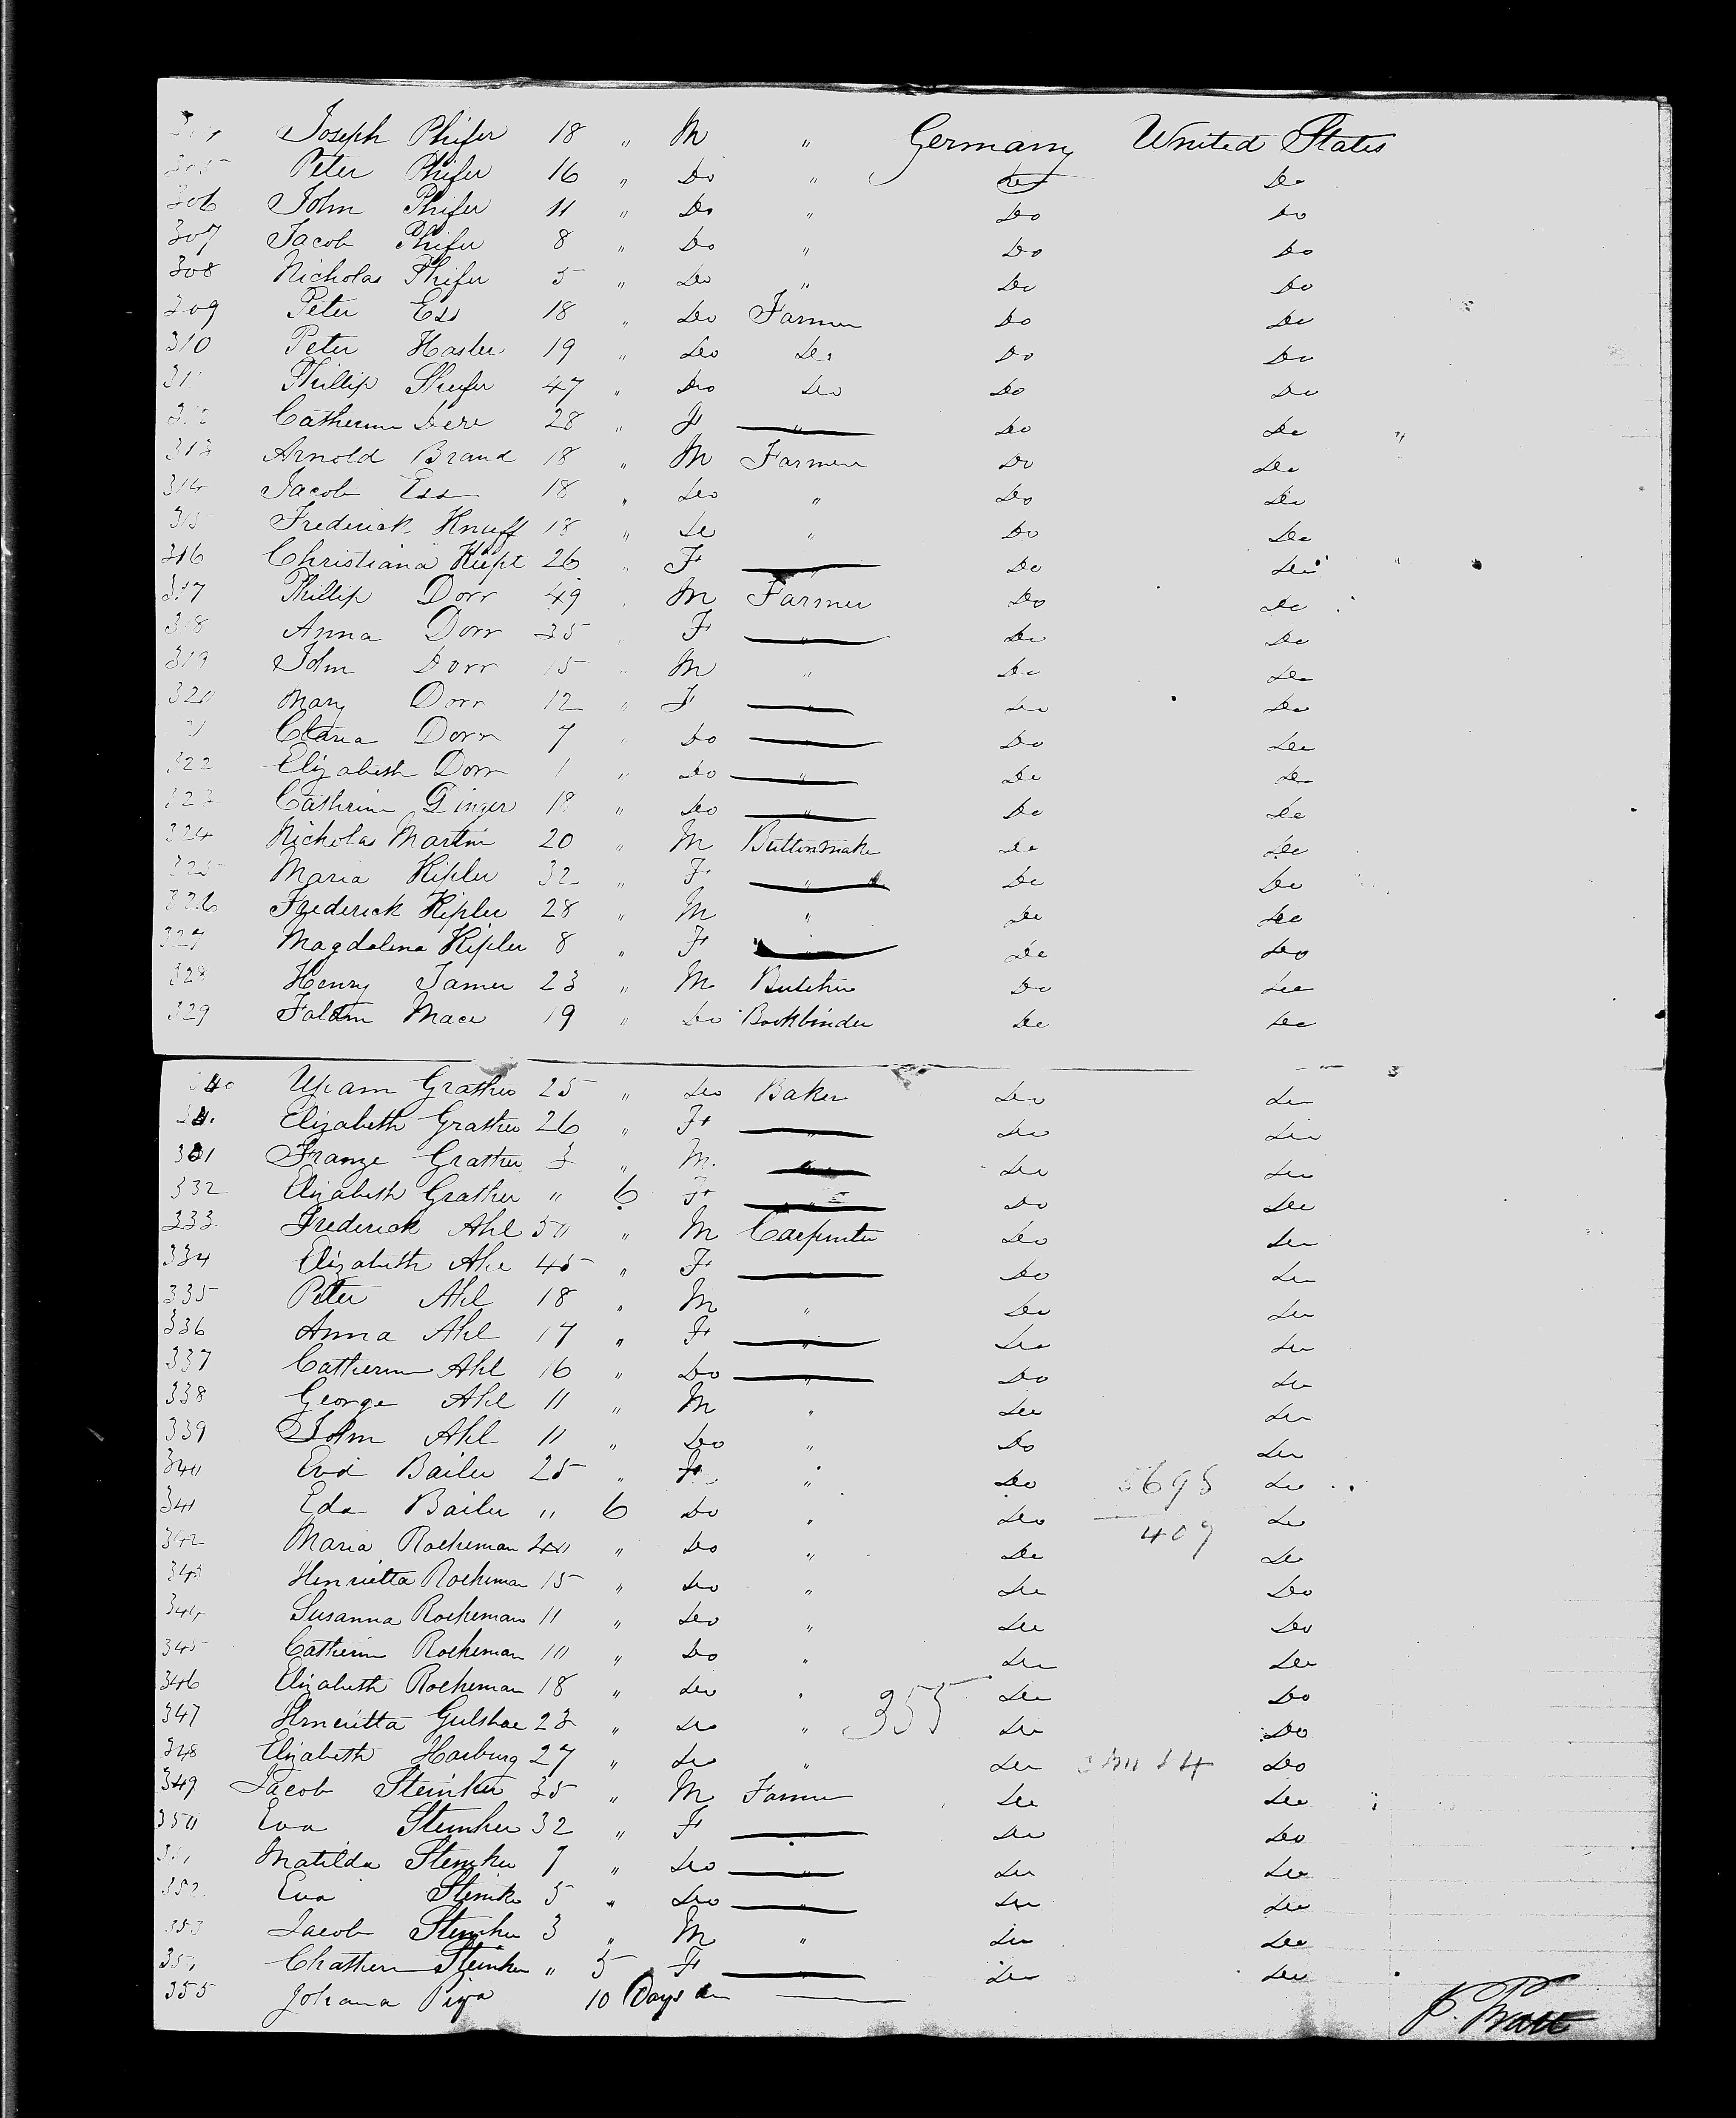 Joseph Phifer 18 " M " Germany United States
305 Peter Phifer 16 " Do " Do Do
306 John Phifer 11 " Do " Do Do
307 Jacob Phifer 8 " Do " Do Do
308 Nicholas Phifer 5 " Do " Do Do
309 Peter Ess 18 " Do Farmer Do Do
310 Peter Hasler 19 " Do Do Do Do
31 Phillip 47 " Do Do Do Do
312 Catherine Dere 28 " F " Do Do
313 Arnold Brand 18 " M Farmer Do Do
314 Jacob Ess 18 " Do " Do Do
315 Frederick Knuff 18 " Do " Do Do
316 Christiana 26 " F " Do Do
317 Phillip Dorr 49 " M Farmer Do Do
318 Anna Dorr 35 " F " Do Do
319 John Dorr 15 " M " Do Do
320 Mary Dorr 12 " F " Do Do
Clara Dorr 7 " Do " Do Do
322 Elizabeth Dorr 1 " Do " Do Do
323 Cathrine Ginger 18 " Do " Do Do
324 Nicholas Martin 20 " M Buttonmaker Do Do
325 Maria Kipler 32 " F " Do Do
326 Frederick Kipler 28 " M " Do Do
327 Magdalena Kipler 8 " F " Do Do
328 Henry Jamer 23 " M Butcher Do Do
329 Mace 19 " Do Bookbinder Do Do
Grather 25 " Do Baker Do Do
Elizabeth Grather 26 " F " Do Do
331 Franze Grather 3 " M Do Do
332 Elizabeth Grather " 6 F " Do Do
333 Frederick Ahl 50 " M Carpenter Do Do
334 Elizabeth Ahl 45 " F Do Do
335 Peter Ahl 18 " M " Do Do
336 Anna Ahl 17 " F " Do Do
337 Catherine Ahl 16 " Do " Do Do
338 George Ahl 11 " M " Do Do
339 John Ahl 11 " Do " Do Do
340 Eva Bailer 25 " F " Do Do
341 Eda Bailer " 6 Do " Do 409 Do
342 Maria Rocheman 40 " Do " Do Do
343 Henrietta Rocheman 15 " Do " Do Do
344 Susanna Rocheman 11 " Do " Do Do
345 Catherin Rocheman 10 " Do " Do Do
346 Elizabeth Rocheman 18 " Do " Do Do
347 Henrietta 23 " Do " 355 Do Do
348 Elizabeth Harburg 27 " Do " Do Do
349 Jacob Steinker 35 " M Farmer Do Do
350 Eva Steinker 32 " F Do Do
351 Matilda Steinker 7 " Do " Do Do
352 Eva Steinker 5 " Do " Do Do
353 Jacob Steinker 3 " M " Do Do
354 Steinker " 5 F Do Do
355 Johana 10 Days
P. Pratt